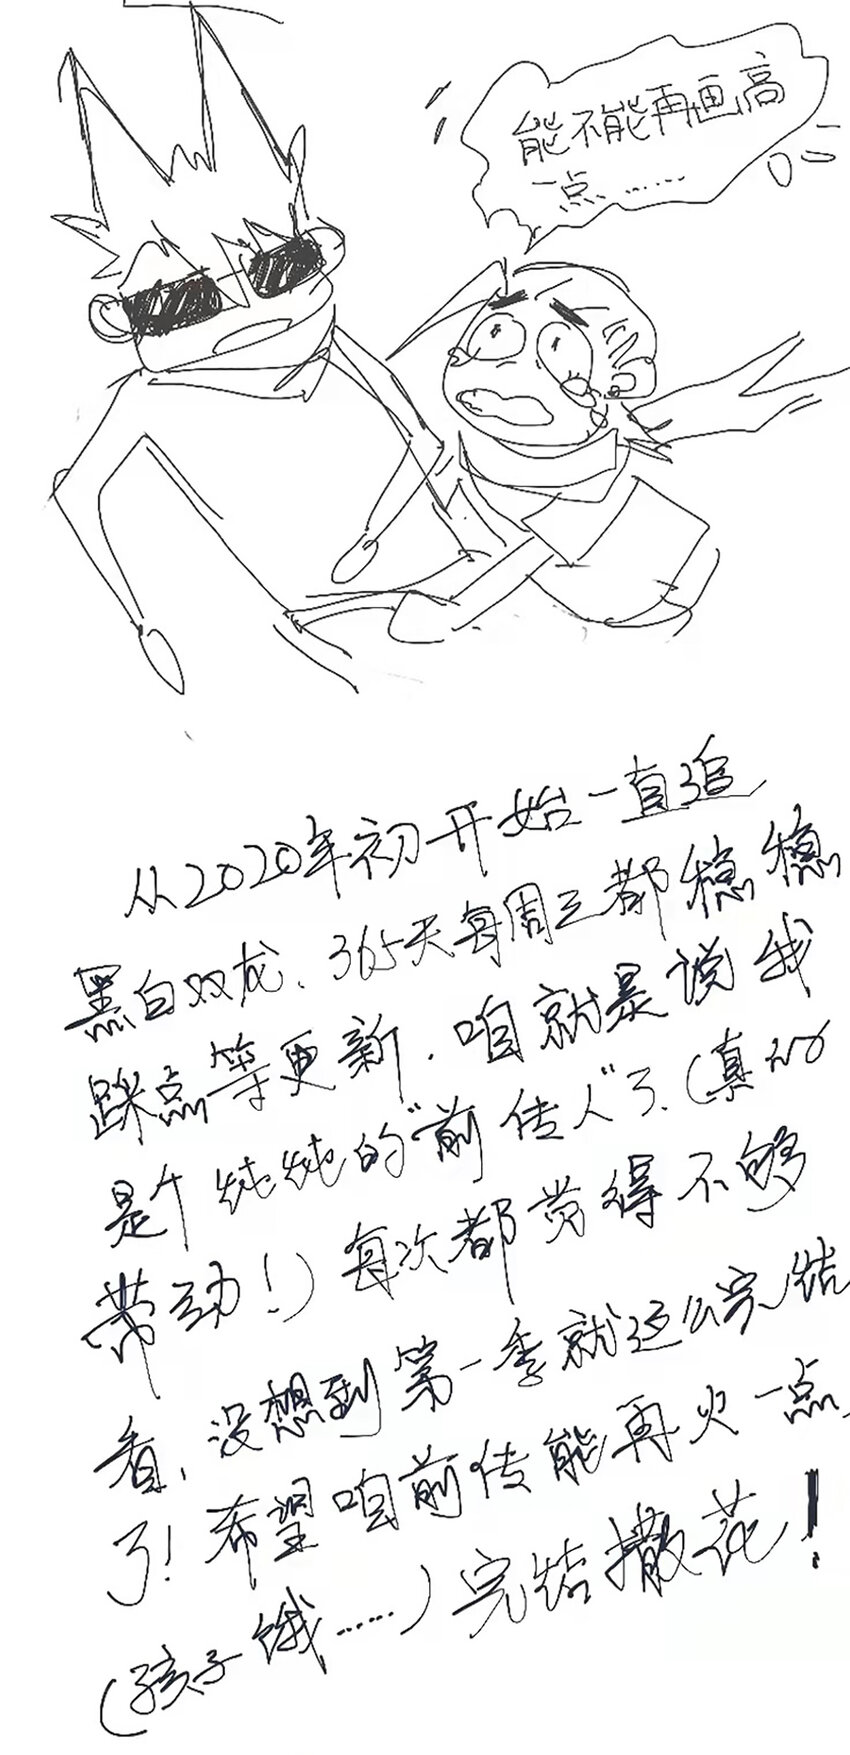 能不能再画高
一点……
从2020年初开始一直追
黑白双龙、365天每周三都稳稳
踩点等更新.咱就是说我
是个纯纯的“前传人”了.(真的
带劲!)每次都觉得不够
看、没想到第一季就这么完结
了!希望咱前传能再火一点
(孩子饿……)完结撒花!